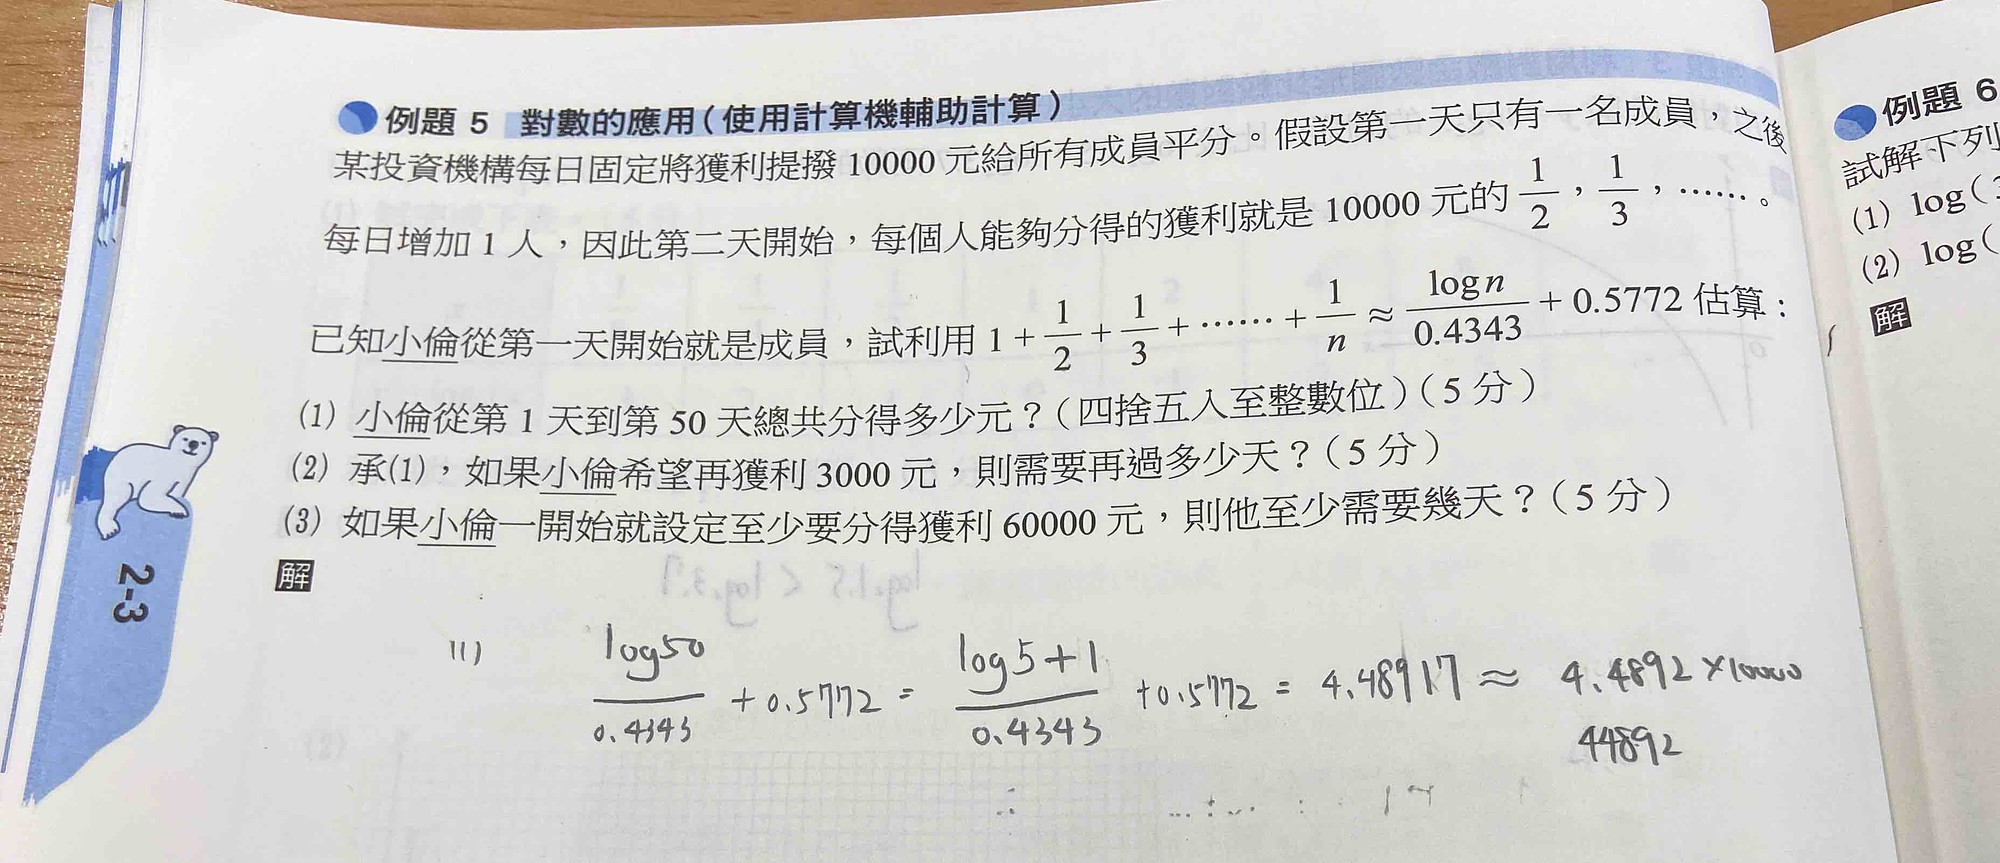 例題 5 對數的應用(使用計算機輔助計算)
某投資機構每日固定將獲利提撥 10000 元給所有成員平分。假設第一天只有一名成員,之後
每日增加 1 人,因此第二天開始,每個人能夠分得的獲利就是 10000 元的 1/2,1/3,……。
已知小倫從第一天開始就是成員,試利用 1+1/2+1/3+……+1/n≈log n/0.4343+0.5772 估算:
(1) 小倫從第 1 天到第 50 天總共分得多少元?(四捨五入至整數位)(5 分)
(2) 承(1),如果小倫希望再獲利 3000 元,則需要再過多少天?(5 分)
(3) 如果小倫一開始就設定至少要分得獲利 60000 元,則他至少需要幾天?(5 分)
解
(1) log50/0.4343 + 0.5772 = log5+1/0.4343 + 0.5772 = 4.48917 ≈ 4.4892×10000
44892
2-3
例題 6
試解下列
(1) log(
(2) log(
解